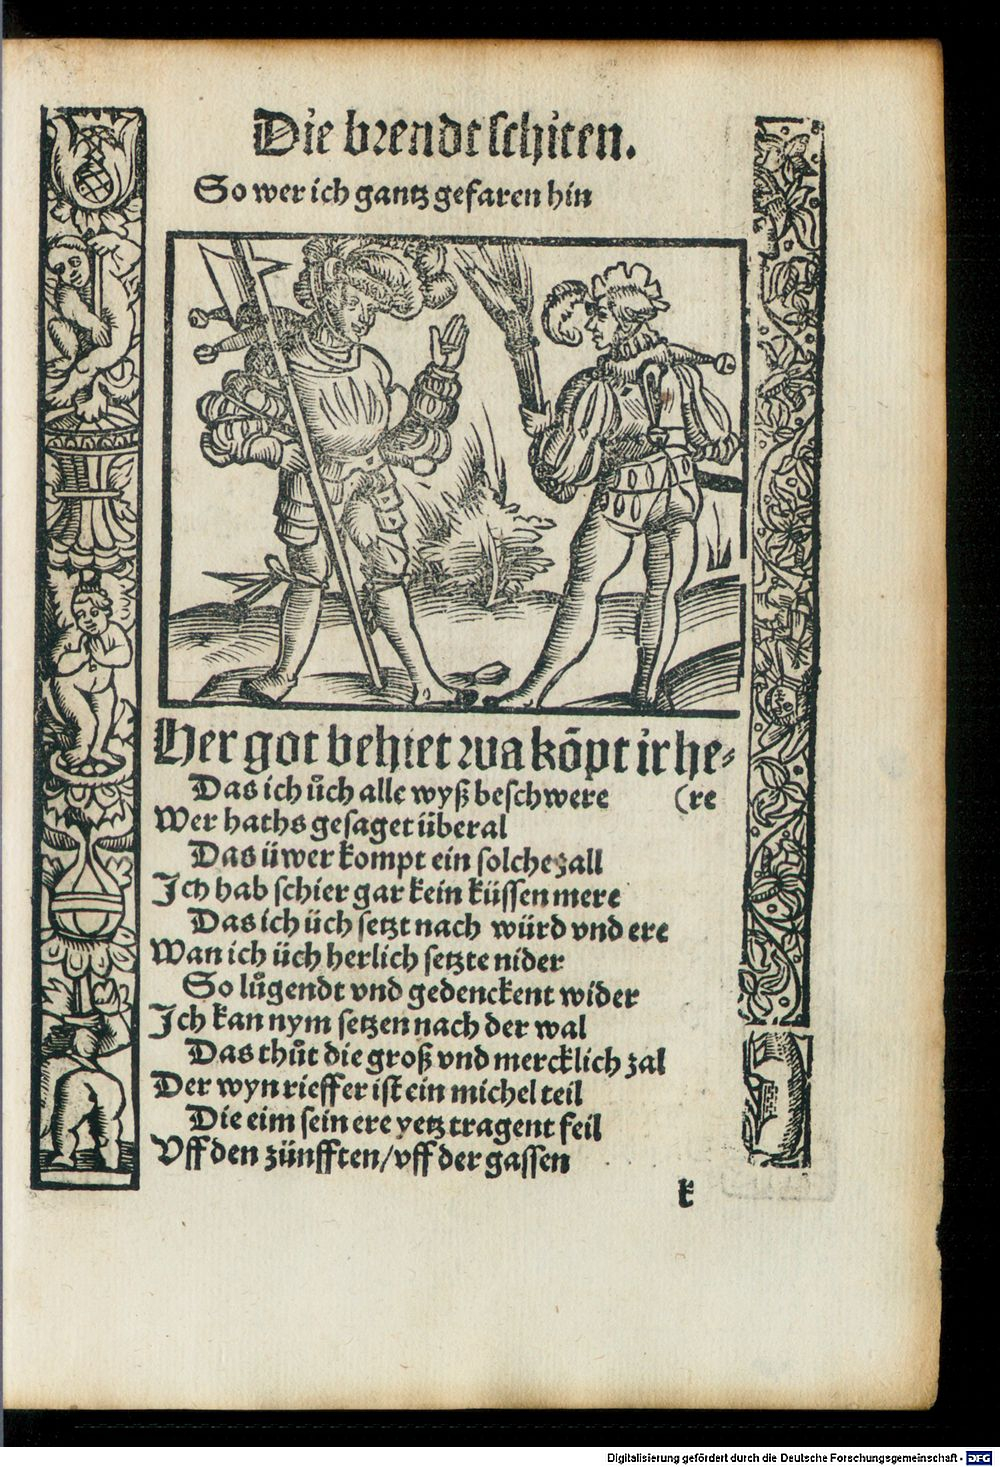 Die brendt schiten.
So wer ich gantz gefaren hin
Her got behiet wa kõpt ir he⸗
Das ich ůch alle wyß beschwere (re
Wer haths gesaget überal
Das üwer kompt ein solche zall
Ich hab schier gar kein küssen mere
Das ich üch setzt nach würd vnd ere
Wan ich üch herlich setzte nider
So lůgendt vnd gedenckent wider
Ich kan nym setzen nach der wal
Das thůt die groß vnd mercklich zal
Der wyn rieffer ist ein michel teil
Die eim sein ere yetz tragent feil
Vff den zünfften/vff der gassen
k
Digitalisierung gefördert durch die Deutsche Forschungsgemeinschaft - DFG